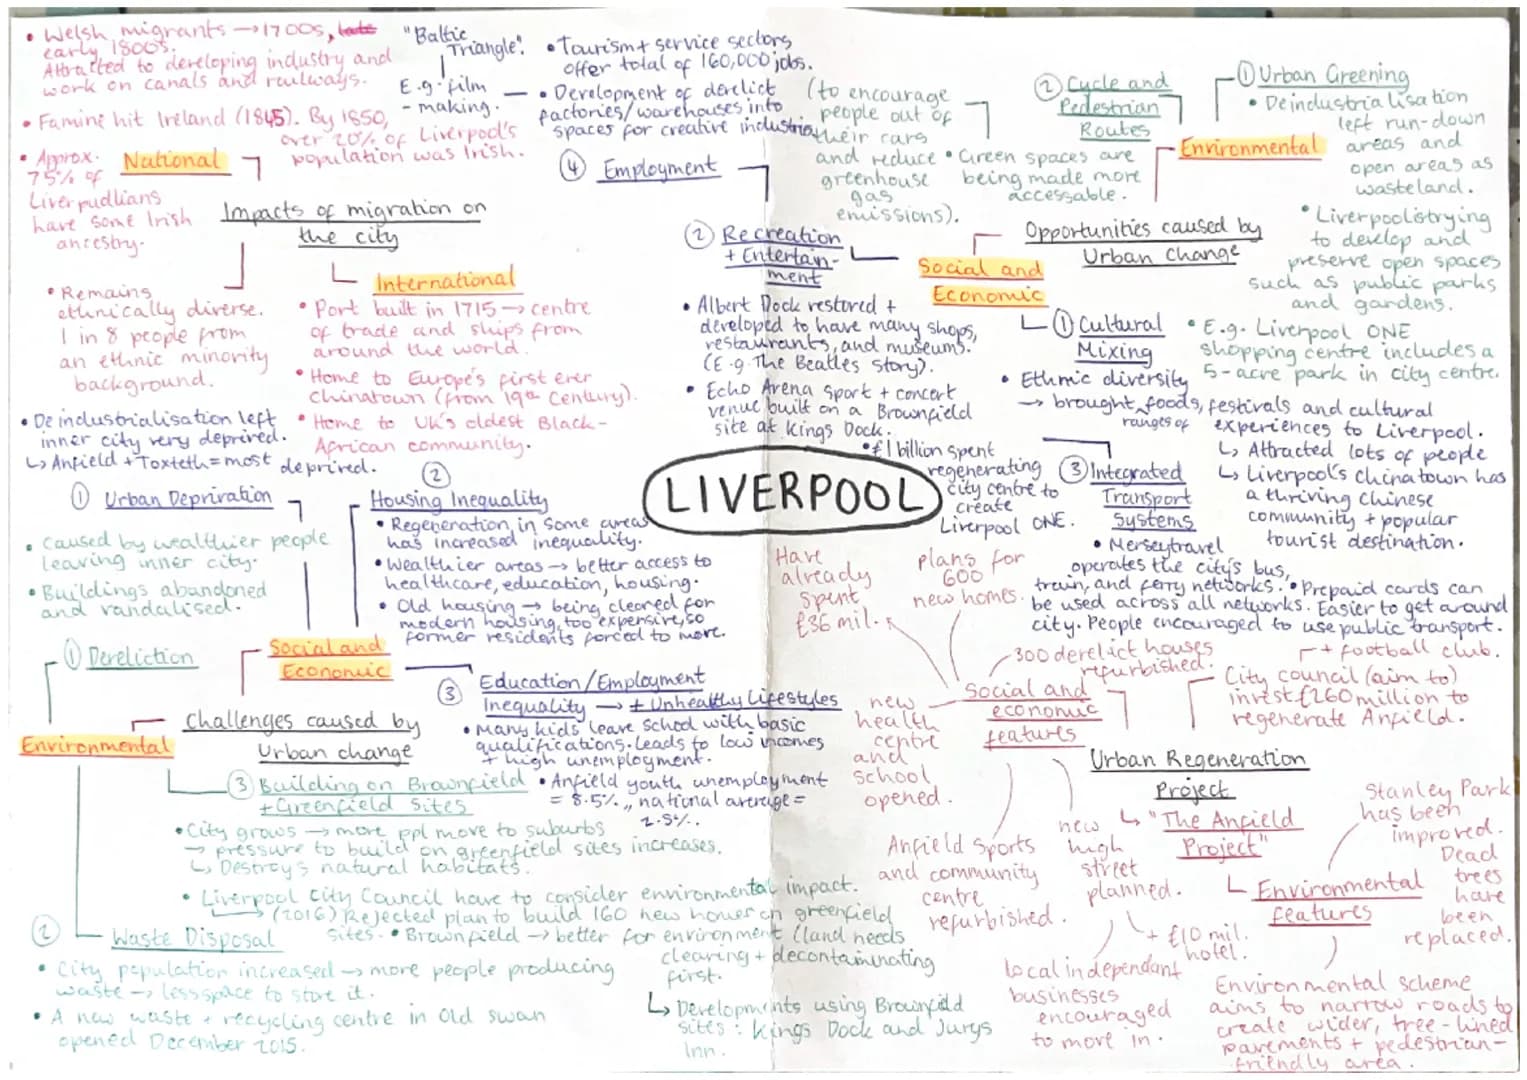 • Welsh migrants → 1700s, late
early 1800s.
Attracted to developing industry and
work on canals and railways.
• Famine hit Ireland (1845). By 1850,
over 20% of Liverpool's
population was Irish.
• Approx.
75% of
Liverpudlians
have some Irish
ancestry.
National
Impacts of migration on
the city
International
• Remains
ethnically diverse.
1 in 8 people from
an ethnic minority
background.
• Port built in 1715 → centre
of trade and ships from
around the world.
• Home to Europe's first ever
chinatown (from 19th Century).
• Home to UK's oldest Black-
African community.
"Baltic
Triangle".
E.g. film
-making.
• Tourism + service sectors
offer total of 160,000 jobs.
• Development of derelict
factories/warehouses into
spaces for creative industries
④ Employment
② Recreation
+ Entertain-
ment
• Albert Dock restored +
developed to have many shops,
restaurants, and museums.
(E.g. The Beatles story).
• Echo Arena sport + concert
venue built on a Brownfield
site at Kings Dock.
• £1 billion spent
regenerating
city centre to
create
Liverpool ONE.
Social and
Economic
Opportunities caused by
Urban change
Environmental
① Urban Greening
• Deindustrialisation
left run-down
areas and
open areas as
wasteland.
• Liverpool is trying
to develop and
preserve open spaces
such as public parks
and gardens.
• E.g. Liverpool ONE
shopping centre includes a
5-acre park in city centre.
② Cycle and
Pedestrian
Routes
• Green spaces are
being made more
accessable.
(to encourage
people out of
their cars
and reduce
greenhouse
gas
emissions).
① Cultural
Mixing
• Ethnic diversity
→ brought ranges of foods, festivals and cultural
experiences to Liverpool.
↳ Attracted lots of people
↳ Liverpool's chinatown has
a thriving Chinese
community + popular
tourist destination.
③ Integrated
Transport
Systems
• Merseytravel
operates the city's bus,
train, and ferry networks. • Prepaid cards can
be used across all networks. Easier to get around
city. People encouraged to use public transport.
LIVERPOOL
• Deindustrialisation left
inner city very deprived.
↳ Anfield + Toxteth = most deprived.
① Urban Deprivation
② Housing Inequality
• Regeneration in some areas
has increased inequality.
• Wealthier areas → better access to
healthcare, education, housing.
• Old housing → being cleared for
modern housing, too expensive, so
former residents forced to move.
Social and
Economic
③ Education/Employment
Inequality → + Unhealthy Lifestyles
• Many kids leave school with basic
qualifications. Leads to low incomes
+ high unemployment.
• Anfield youth unemployment
= 8.5%, national average =
2.5%.
Challenges caused by
Urban change
Environmental
• Caused by wealthier people
leaving inner city.
• Buildings abandoned
and vandalised.
① Dereliction
③ Building on Brownfield
+ Greenfield Sites
• City grows → more ppl move to suburbs
→ pressure to build on greenfield sites increases.
↳ Destroy's natural habitats.
• Liverpool City Council have to consider environmental impact.
→ (2016) Rejected plan to build 160 new homes on greenfield
sites. • Brownfield → better for environment (land needs
clearing + decontaminating
first.
↳ Developments using Brownfield
sites: Kings Dock and Jurys
Inn.
② Waste Disposal
• City population increased → more people producing
waste → less space to store it.
• A new waste + recycling centre in Old swan
opened December 2015.
Urban Regeneration
Project
↳ "The Anfield
Project"
+ football club.
City council (aim to)
invest £260 million to
regenerate Anfield.
Social and
economic
features
Have
already
spent
£36 mil.
plans for
600
new homes.
300 derelict houses
refurbished.
new
health
centre
and
school
opened.
Anfield sports
and community
centre
refurbished.
new
high
street
planned.
+ £10 mil.
hotel.
Local independant
businesses
encouraged
to move in.
Environmental
features
Stanley Park
has been
improved.
Dead
trees
have
been
replaced.
Environmental scheme
aims to narrow roads to
create wider, tree-lined
pavements + pedestrian-
friendly area.